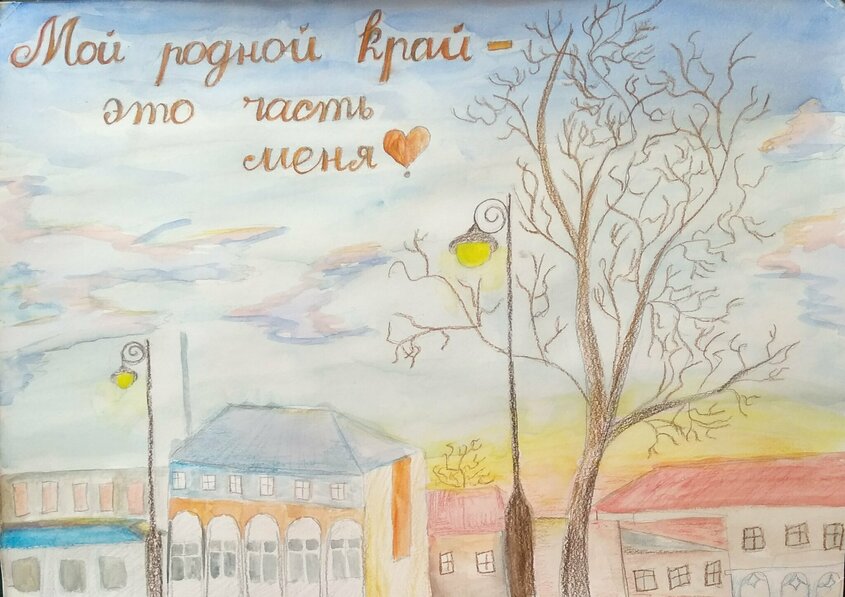 Мой родной край -
это часть
меня